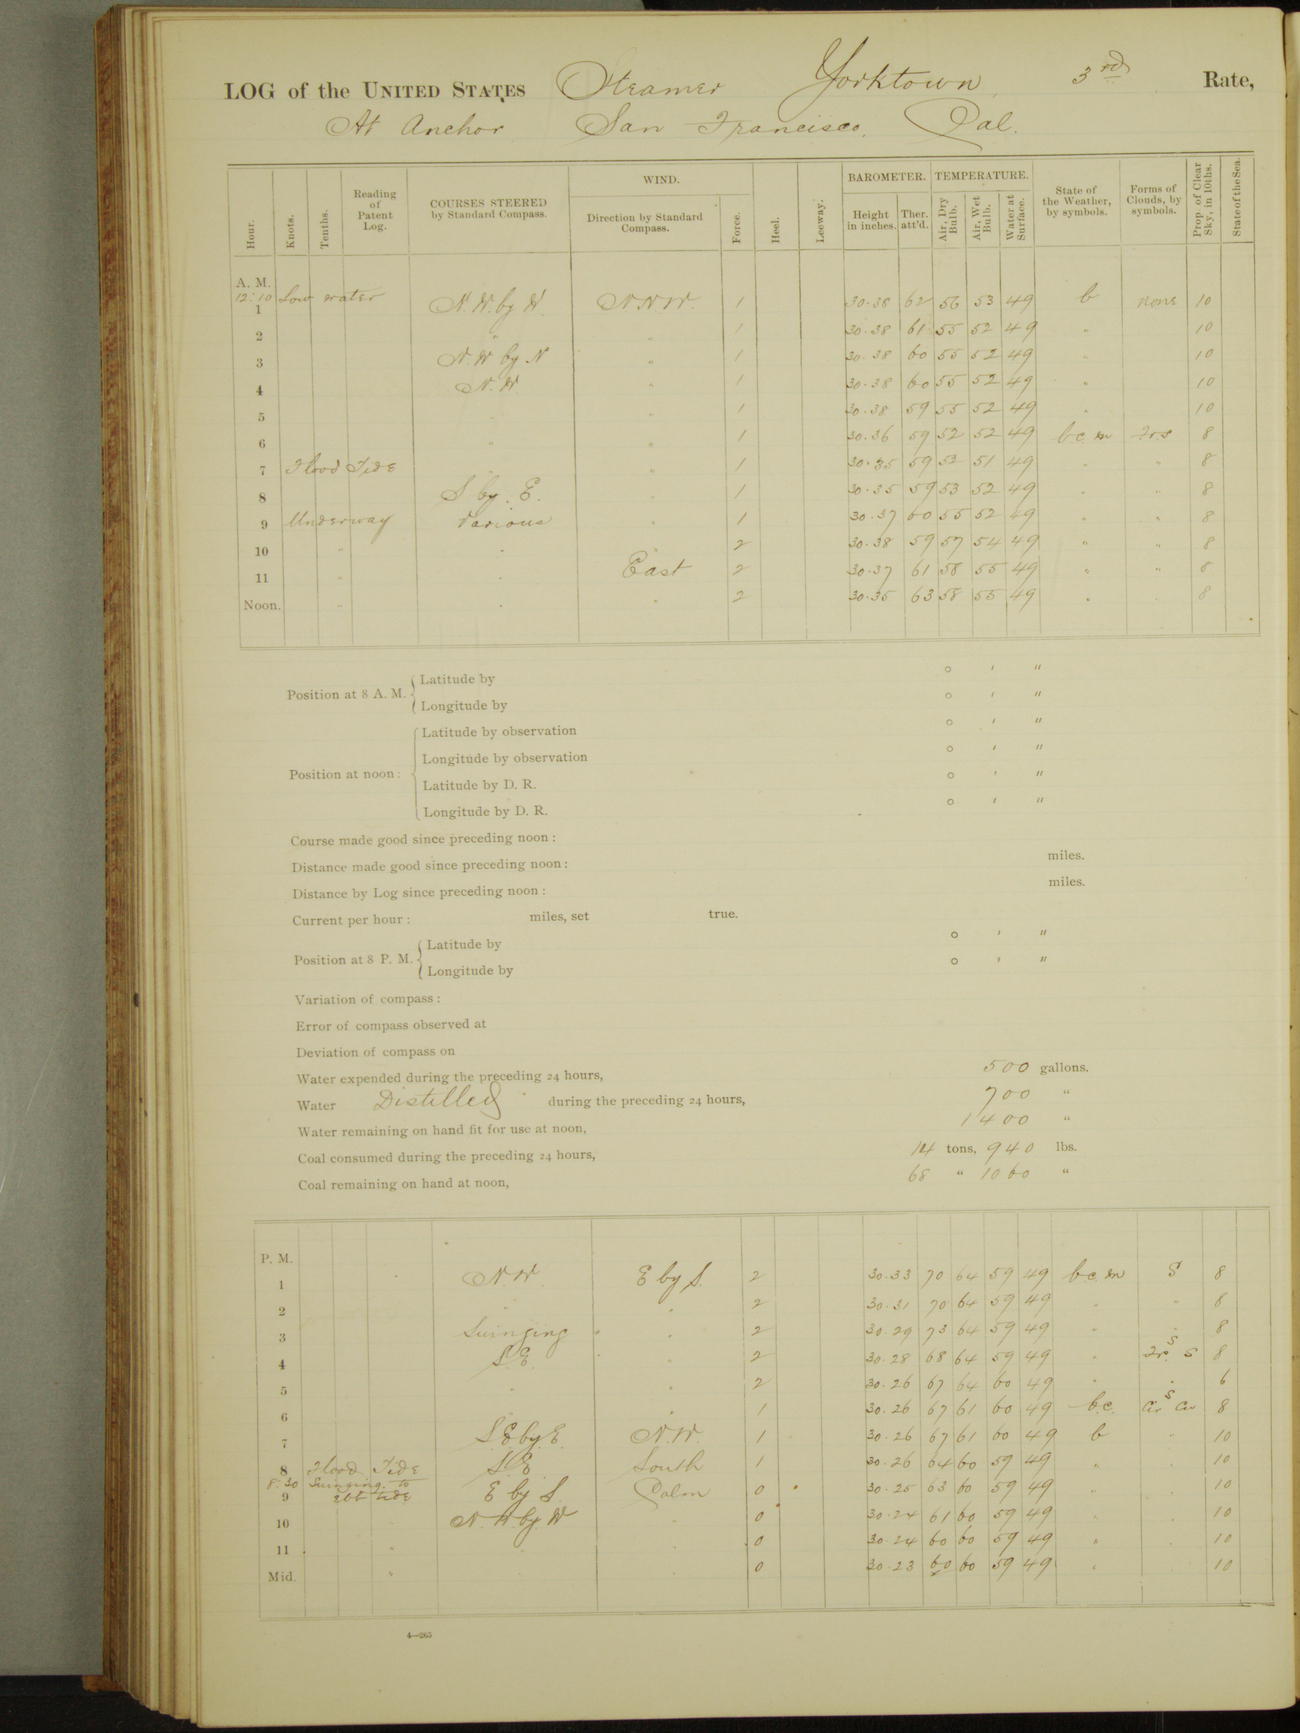 LOG of the UNITED STATES Steamer Yorktown, 3rd Rate,
At Anchor San Francisco, Cal.
Hour. Knots. Tenths. Reading of Patent Log. COURSES STEERED by Standard Compass. WIND. Direction by Standard Compass. Force. Heel. Leeway. BAROMETER. Height in inches. Ther. att'd. TEMPERATURE. Air, Dry Bulb. Air, Wet Bulb. Water at Surface. State of the Weather, by symbols. Forms of Clouds, by symbols. Prop. of Clear Sky, in 10ths. State of the Sea.
A. M.
12:10 Low water
1 N.W. by W. NNW. 1 30.38 62 56 53 49 b none 10
2 " " 1 30.38 61 55 52 49 " 10
3 N.W by N " 1 30.38 60 55 52 49 " 10
4 N.W " 1 30.38 60 55 52 49 " 10
5 " " 1 30.38 59 55 52 49 " 10
6 " " 1 30.36 59 52 52 49 bcm 8
7 Flood Tide " " 1 30.35 59 52 51 49 " " 8
8 S by E. " 1 30.35 59 53 52 49 " " 8
9 Underway Various " 1 30.37 60 55 52 49 " " 8
10 " " " 2 30.38 59 57 54 49 " " 8
11 " " East 2 30.37 61 58 55 49 " " 8
Noon. " " " 2 30.35 63 58 55 49 " " 8
Position at 8 A. M. { Latitude by ° ' "
Longitude by ° ' "
Position at noon: { Latitude by observation ° ' "
Longitude by observation ° ' "
Latitude by D. R. ° ' "
Longitude by D. R. ° ' "
Course made good since preceding noon:
Distance made good since preceding noon: miles.
Distance by Log since preceding noon: miles.
Current per hour: miles, set true.
Position at 8 P. M. { Latitude by ° ' "
Longitude by ° ' "
Variation of compass:
Error of compass observed at
Deviation of compass on
Water expended during the preceding 24 hours, 500 gallons.
Water Distilled during the preceding 24 hours, 700 "
Water remaining on hand fit for use at noon, 1400 "
Coal consumed during the preceding 24 hours, 14 tons, 940 lbs.
Coal remaining on hand at noon, 68 " 1060 "
P. M.
1 N.W. E by S. 2 30.33 70 64 59 49 bcm S 8
2 " " 2 30.31 70 64 59 49 " " 8
3 Swinging " 2 30.29 73 64 59 49 " " 8
4 S.E. " 2 30.28 68 64 59 49 " S 8
5 " " 2 30.26 67 64 60 49 " " 6
6 " " 1 30.26 67 61 60 49 b.c. 8
7 S.E by E. N.W. 1 30.26 67 61 60 49 b " 10
8 Flood Tide S.E. South 1 30.26 64 60 59 49 " " 10
8:30 Swinging to
9 ebb tide E by S. Calm 0 30.25 63 60 59 49 " " 10
10 " N.W. by W " 0 30.24 61 60 59 49 " " 10
11 " " " 0 30.24 60 60 59 49 " " 10
Mid. " " 0 30.23 60 60 59 49 " " 10
4—265